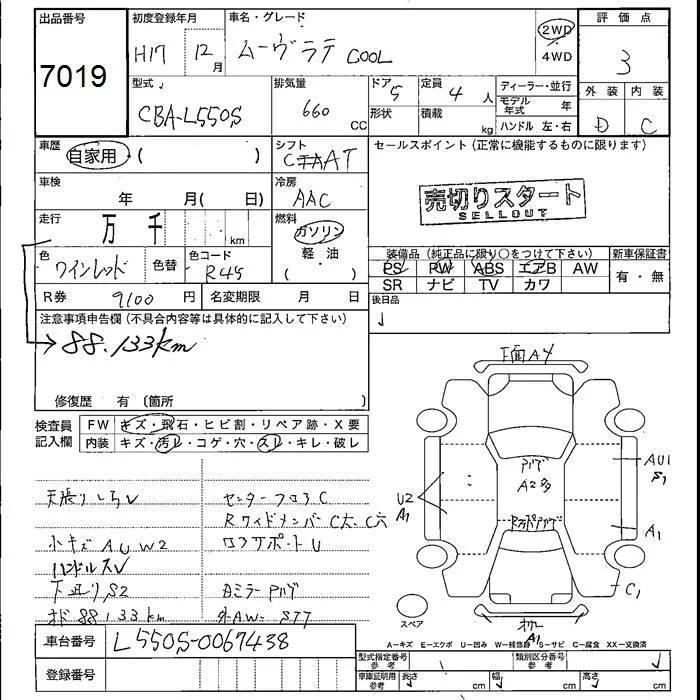 出品番号
7019
初度登録年月
H17 12月
車名・グレード
ムーヴラテ COOL
2WD
4WD
評価点
3
外装 内装
D C
型式
CBA-L550S
排気量
660 CC
ドア 5
形状
定員 4人
積載 kg
ディーラー・並行
モデル年式 年
ハンドル 左・右
車歴
自家用・( )
シフト
AT
セールスポイント(正常に機能するものに限ります)
売切りスタート
SELLOUT
車検
年 月( 日)
冷房
AAC
走行
万 千 km
燃料
ガソリン
軽・油
( )
色
ワインレッド
色替
色コード
R45
装備品(純正品に限り○をつけて下さい)
PS PW ABS エアB AW
SR ナビ TV カワ
新車保証書
有・無
R券 9100円
名変期限 月 日
後日品
注意事項申告欄(不具合内容等は具体的に記入して下さい)
88.133km
修復歴 有 〔箇所 〕
検査員記入欄
FW キズ・飛石・ヒビ割・リペア跡・X要
内装 キズ・汚レ・コゲ・穴・スレ・キレ・破レ
天張りしちV
センターフロアC
小キズAUW2
ハンドルスV
下廻りS2
88.133km
下面A4
A2多
U2
A1
AU1
S1
A1
C1
A1
スペア
車台番号
L550S-0067438
登録番号
A-キズ E-エクボ U-凹み W-補修跡 S-サビ C-腐食 XX-交換済
型式指定番号 参考
類別区分番号 参考
車庫証明用 参考
長さ cm 幅 cm 高さ cm